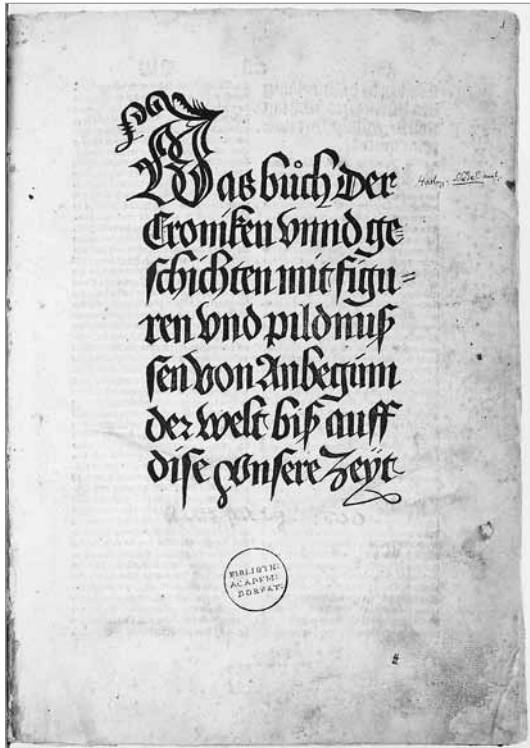 Das bůch Der
Croniken vnnd ge=
schichten mit figu=
ren vnd pildnuß
sen von Anbeginn
der welt biß auff
dise vnsere Zeyt
BIBLIOTH:
ACADEMI:
DORPAT: